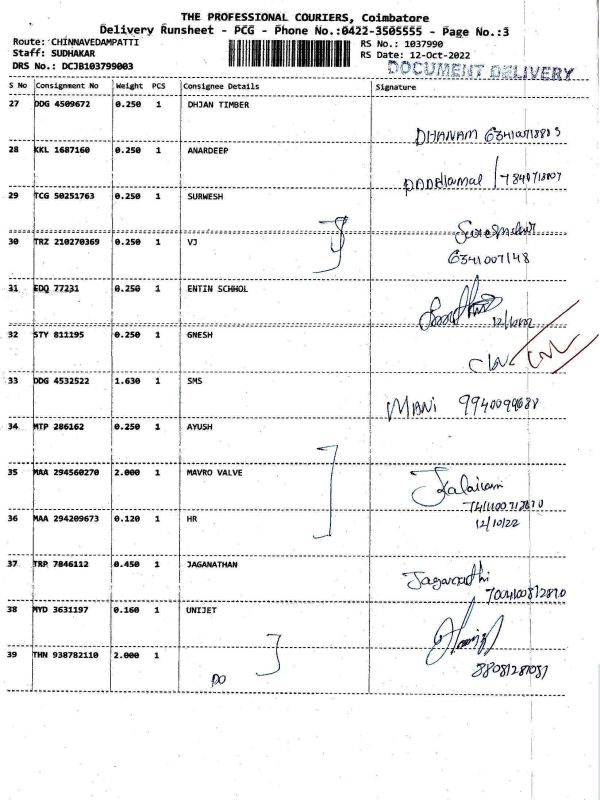 THE PROFESSIONAL COURIERS, Coimbatore
Delivery Runsheet - PCG - Phone No.:0422-3505555 - Page No.:3
Route: CHINNAVEDAMPATTI RS No.: 1037990
Staff: SUDHAKAR RS Date: 12-Oct-2022
DRS No.: DCJB103799003 DOCUMENT DELIVERY
S No Consignment No Weight PCS Consignee Details Signature
27 DDG 4509672 0.250 1 DHJAN TIMBER
DHANAM
28 KKL 1687160 0.250 1 ANARDEEP
7840713807
29 TCG 50251763 0.250 1 SURWESH
30 TRZ 210270369 0.250 1 VJ
6341007148
31 EDQ 77231 0.250 1 ENTIN SCHHOL
32 STY 811195 0.250 1 GNESH
33 DDG 4532522 1.630 1 SMS
MANI
34 MTP 286162 0.250 1 AYUSH
35 MAA 294560270 2.000 1 MAVRO VALVE
Kalairani
36 MAA 294209673 0.120 1 HR
12/10/22
37 TRP 7846112 0.450 1 JAGANATHAN
38 MYD 3631197 0.160 1 UNIJET
39 THN 938782110 2.000 1
DO